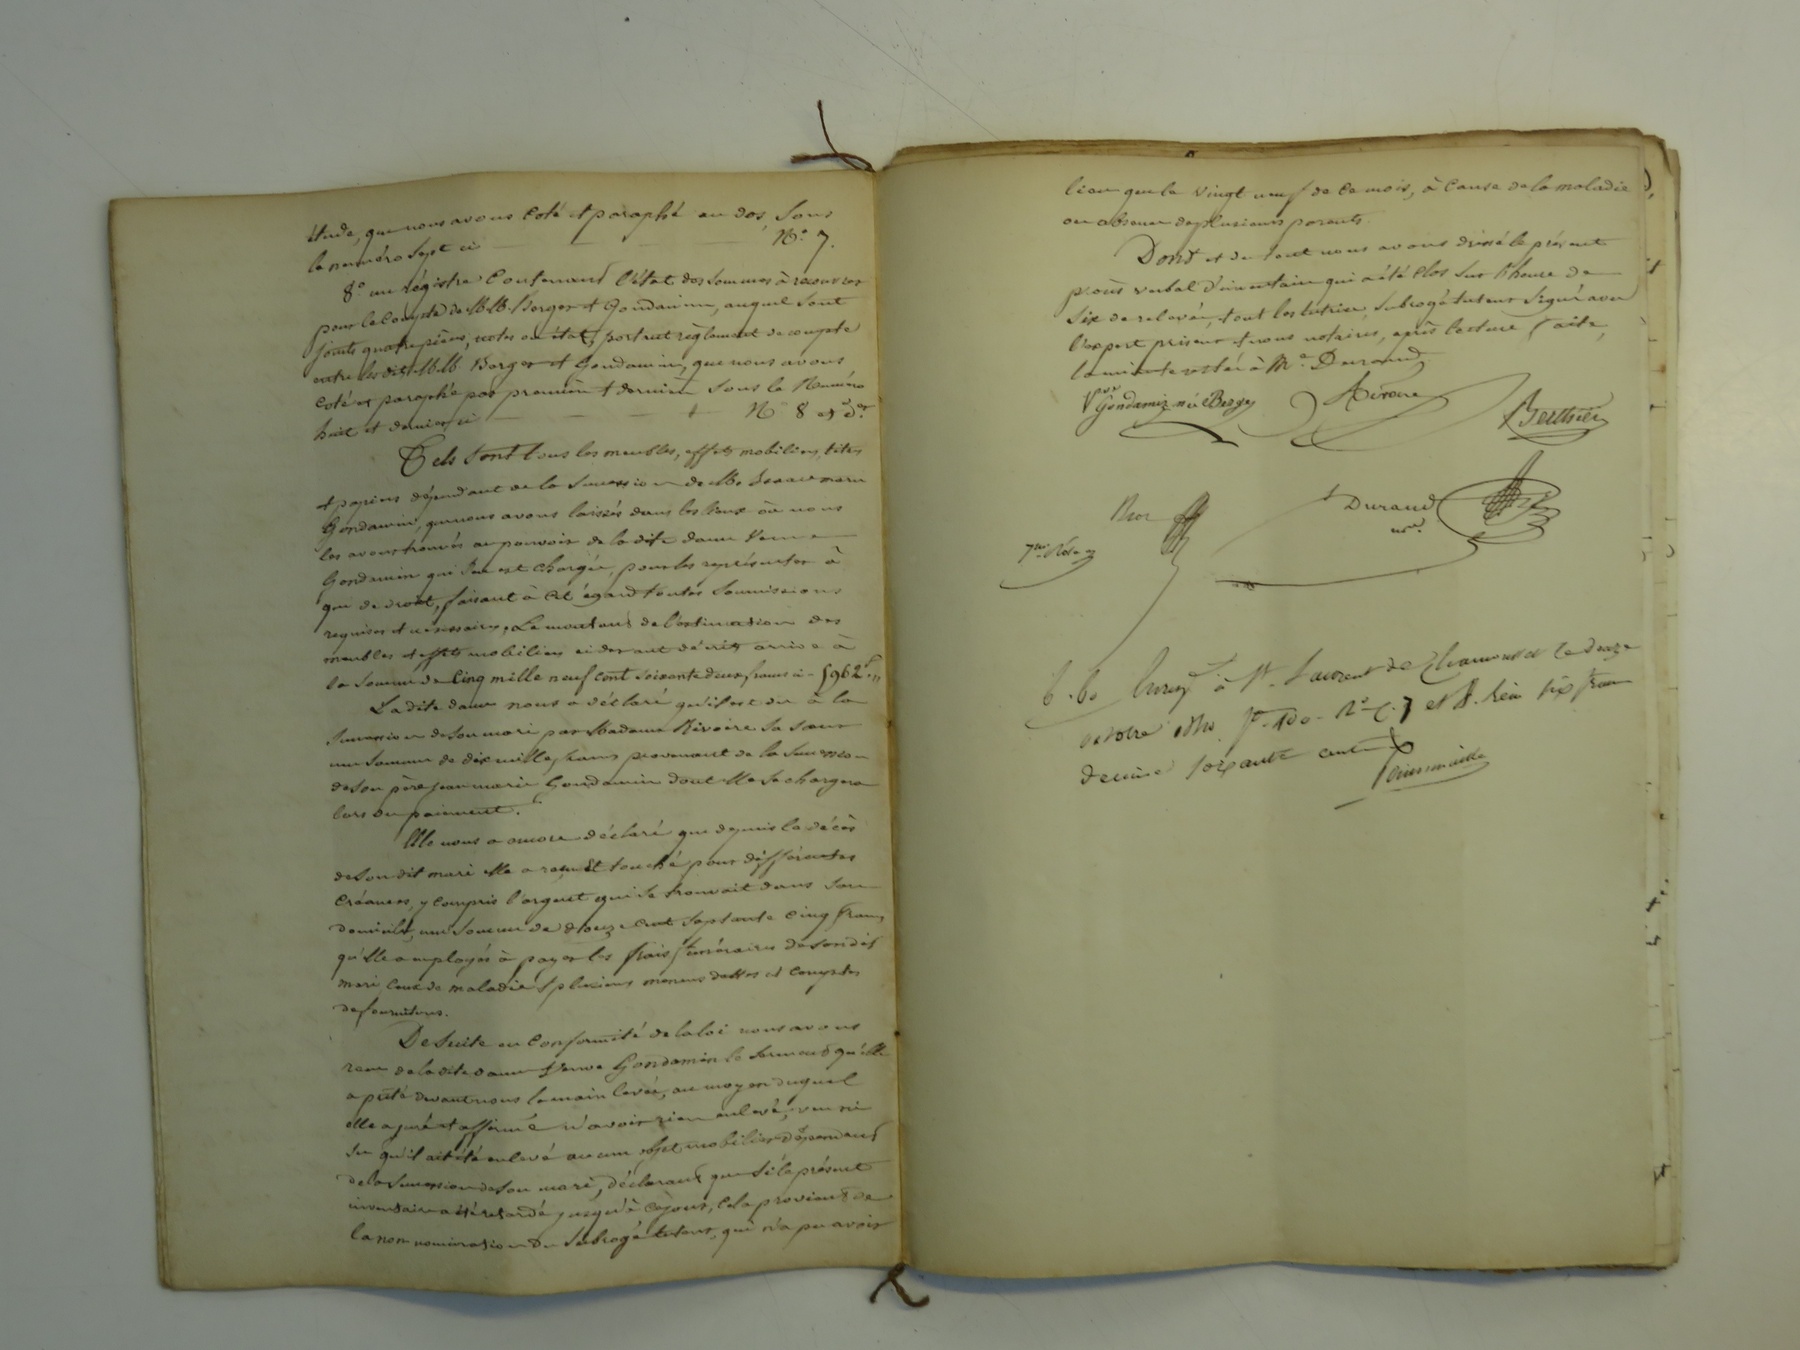 étude, que nous avons coté et paraphé au dos sous
le numéro sept ci — N.° 7.
8.° un régistre contenant l'état des sommes à recouvrer
pour le compte de MM. Berger et Gondamin, auquel sont
joints quatre pièces, notes ou états, portant règlement de compte
entre lesdits MM. Berger et Gondamin, que nous avons
coté et paraphé par première et dernière sous le Numéro
huit et dernier ci — N.° 8 et d.er
Tels sont tous les meubles, effets mobiliers, titres
et papiers dépendant de la succession de M. marie
Gondamin, que nous avons laissés dans les lieux où nous
les avons trouvés au pouvoir de la dite dame Veuve
Gondamin qui s'en est chargée, pour les représenter à
qui de droit, faisant à cet égard toutes soumissions
requises et nécessaires. Le montant de l'estimation des
meubles et effets mobiliers ci devant décrits arrive à
la somme de Cinq mille neuf cent soixante deux francs ci - 5962f.
La dite dame nous a déclaré qu'il est dû à la
succession de son mari par Madame Rivoire sa sœur
une somme de dix mille francs provenant de la succession
de son père jean marie Gondamin dont elle se chargera
lors du paiement.
Elle nous a encore déclaré que depuis le décès
de son dit mari elle a reçu et touché pour différentes
créances, y compris l'argent qui se trouvait dans son
domicile, une somme de douze cent septante cinq francs
qu'elle a employés à payer les frais funéraires de son dit
mari, ceux de maladie et plusieurs menues dettes et comptes
de fournitures.
De suite en conformité de la loi nous avons
reçu de la dite dame Veuve Gondamin le serment qu'elle
a prêté devant nous la main levée, au moyen duquel
elle a juré et affirmé n'avoir rien enlevé, vu ni
su qu'il ait été enlevé aucun objet mobilier dépendant
de la succession de son mari, déclarant que si le présent
inventaire a été retardé jusqu'à ce jour, cela provient de
la non nomination du subrogé tuteur, qui n'a pu avoir
lieu que le vingt neuf de ce mois, à cause de la maladie
ou absence de plusieurs parents.
Dont et du tout nous avons dressé le présent
procès verbal d'inventaire qui a été clos sur l'heure de
six de relevée, tout les tutrice, subrogé tuteur signé avec
l'expert priseur et nous notaires, après lecture faite,
la minute restée à M.e Durand
V.ve Gondamin née Berger
Rivoire
Berthier
Durand
n.re
7.me Rôle
à St. Laurent de Chamousset le douze
octobre f.° 100 r.° c. 7 et 8. reçu six francs
décime soixante cent.